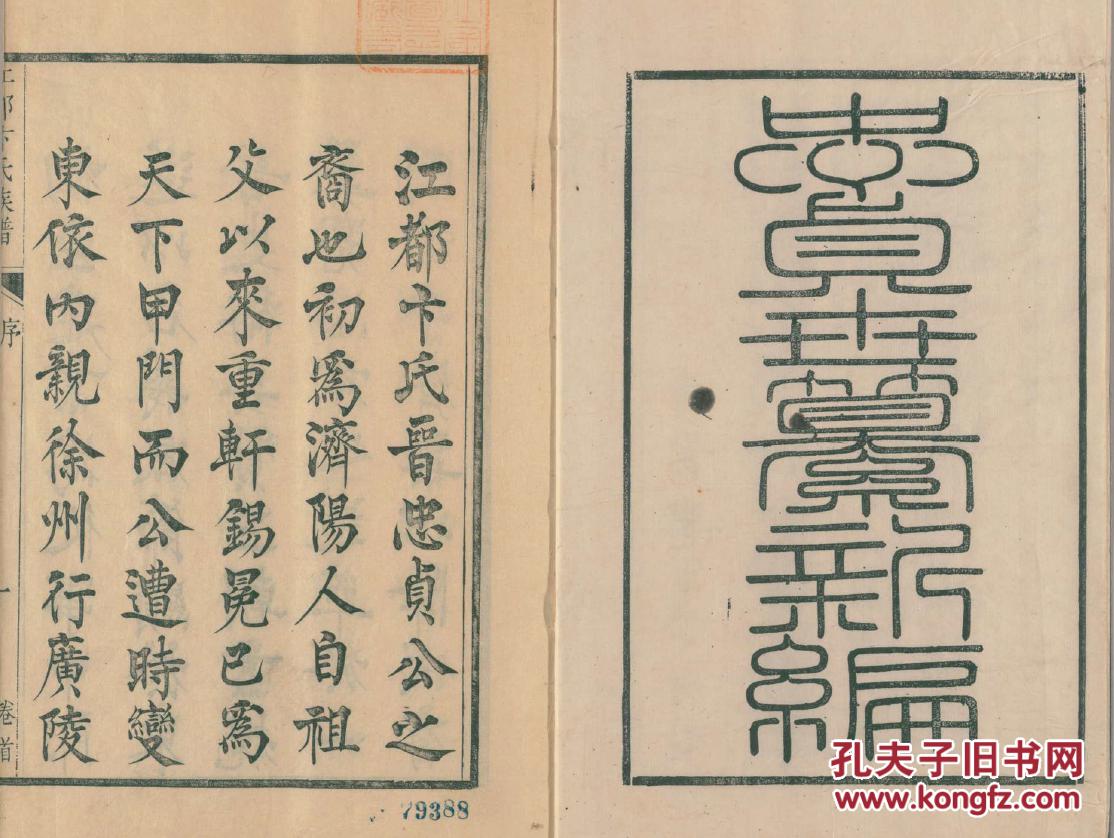 忠貞纂新編
江都卞氏晉忠貞公之
裔也初爲濟陽人自祖
父以來重軒錫冕已爲
天下甲門而公遭時變
東依內親徐州行廣陵
江都卞氏族譜 序 一 卷首
79388
孔夫子旧书网
www.kongfz.com